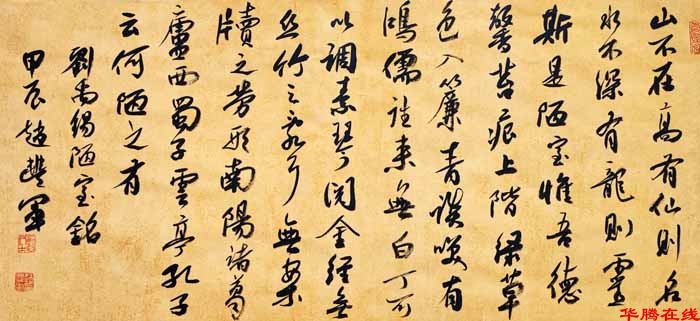 山不在高有仙則名
水不深有龍則靈
斯是陋室惟吾德
馨苔痕上階綠草
色入簾青談笑有
鴻儒往來無白丁可
以調素琴閱金經無
絲竹之亂耳無案
牘之勞形南陽諸葛
廬西蜀子雲亭孔子
云何陋之有
劉禹錫陋室銘
甲辰趙
华腾在线